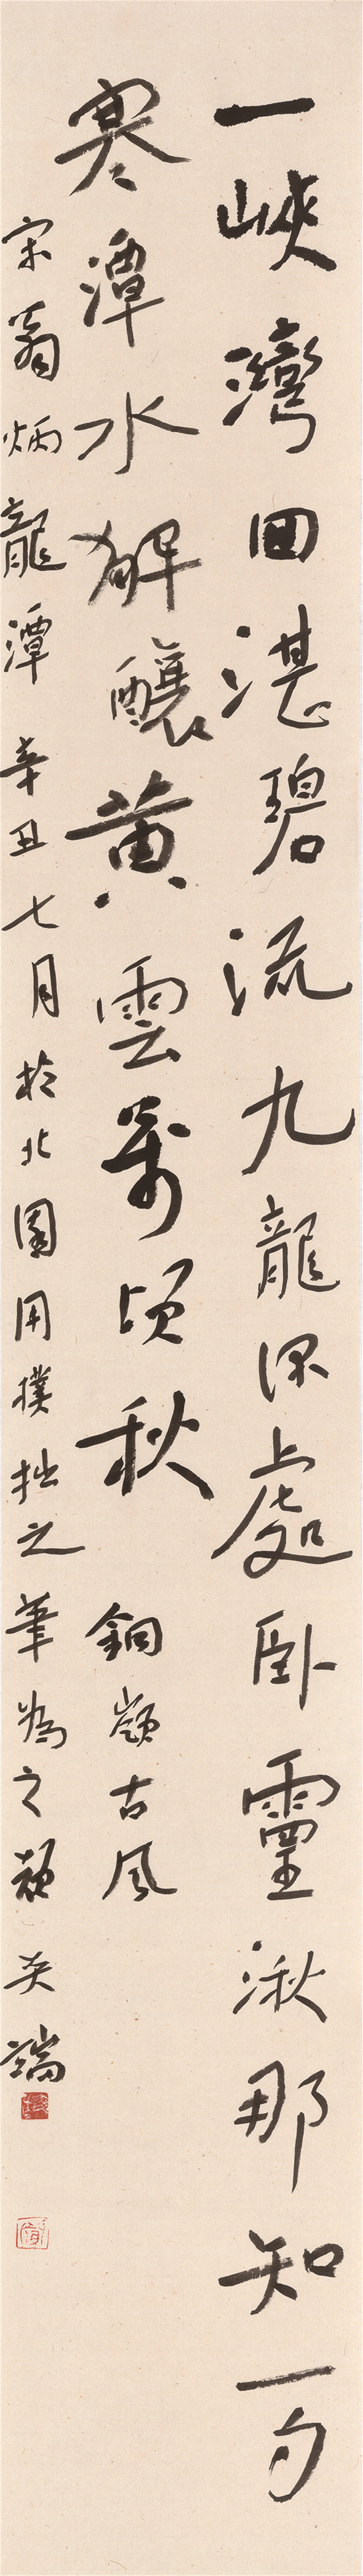 一峽灣回湛碧流九龍深處臥靈湫那知一勺
寒潭水解釀黃雲萬頃秋 銅嶺古風
宋翁炳龍潭 辛丑七月於北園用樸拙之筆為之 顏英端